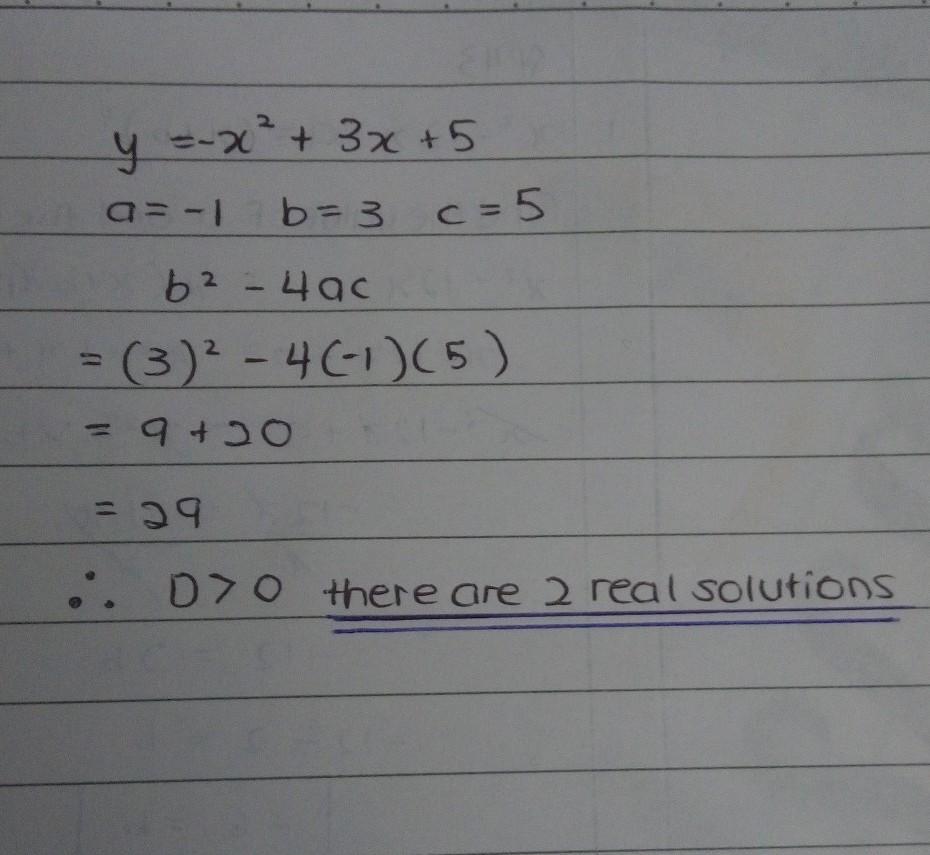 y =-x² + 3x +5
a = -1 b = 3 c = 5
b² - 4ac
= (3)² - 4(-1)(5)
= 9 + 20
= 29
∴ D > 0 there are 2 real solutions